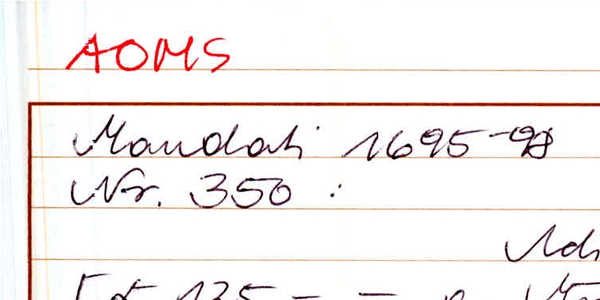 AOMS
Mandati 1695-98
Nr. 350 :
135 - -